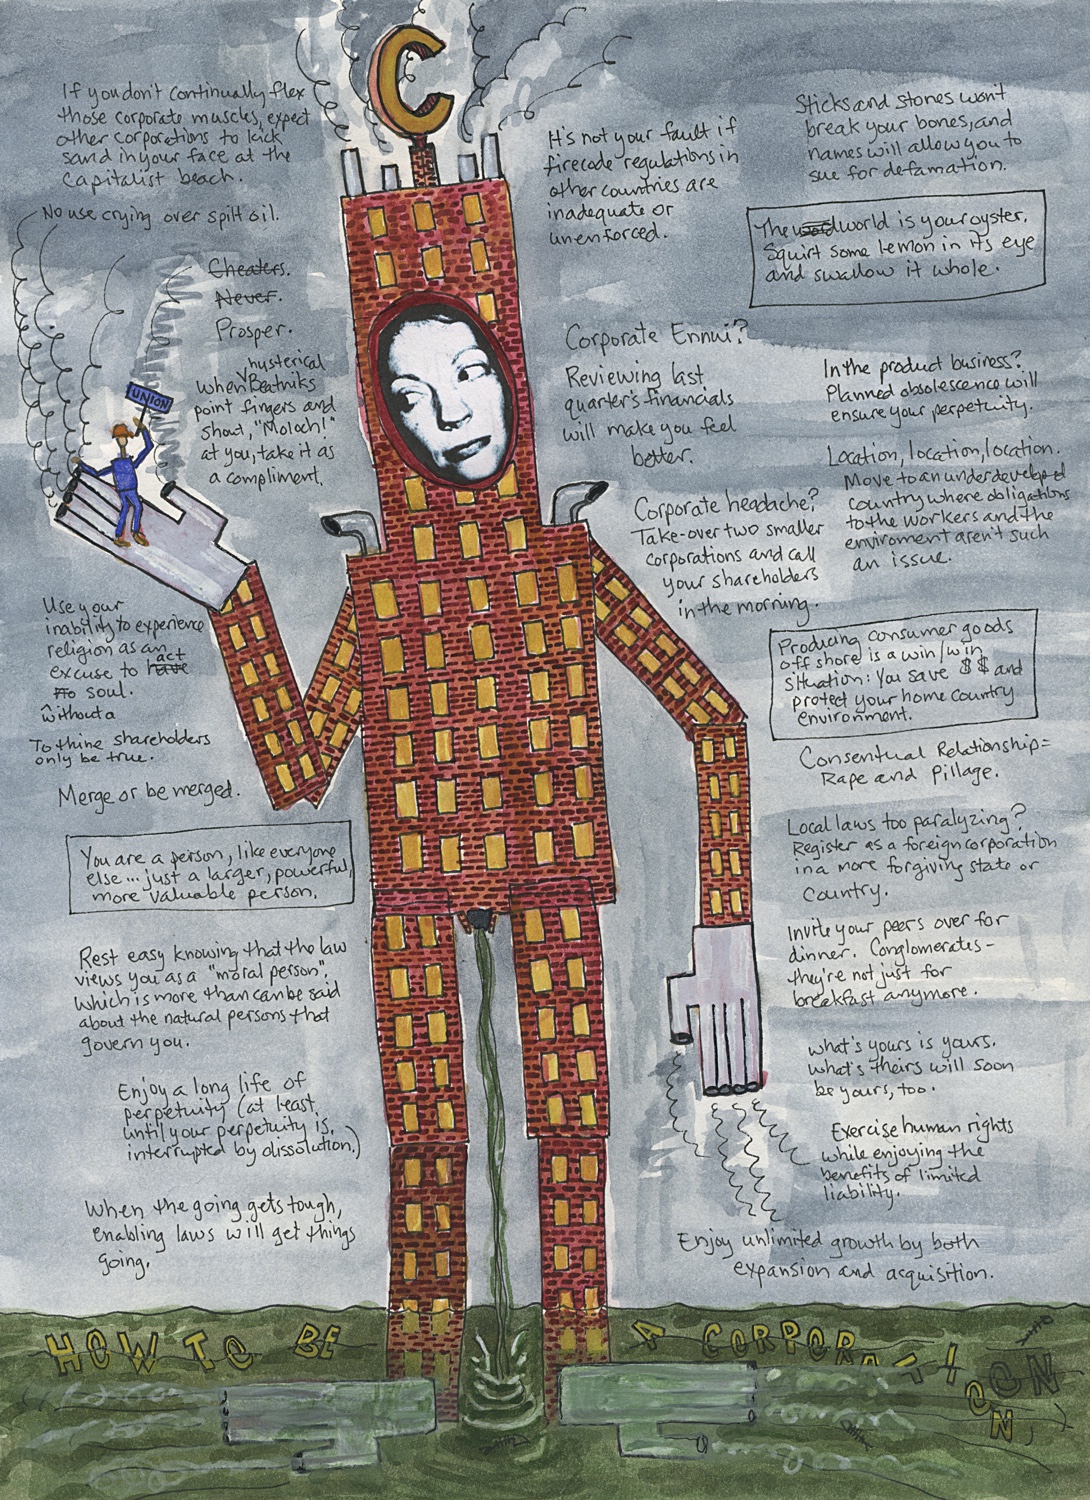 C
If you don't continually flex
those corporate muscles, expect
other corporations to kick
sand in your face at the
Capitalist beach.
No use crying over spilt oil.
Cheaters.
Never.
Prosper.
hysterical
when Beatniks
point fingers and
shout, "Moloch!"
at you, take it as
a compliment.
UNION
Use your
inability to experience
religion as an
excuse to have act
no soul.
without a
To thine shareholders
only be true.
Merge or be merged.
You are a person, like everyone
else... just a larger, powerful,
more valuable person.
Rest easy knowing that the law
views you as a "moral person".
Which is more than can be said
about the natural persons that
govern you.
Enjoy a long life of
perpetuity (at least,
until your perpetuity is
interrupted by dissolution.)
When the going gets tough,
enabling laws will get things
going.
It's not your fault if
firecode regulations in
other countries are
inadequate or
unenforced.
Sticks and stones won't
break your bones, and
names will allow you to
sue for defamation.
The world is your oyster.
Squirt some lemon in its eye
and swallow it whole.
Corporate Ennui?
Reviewing last
quarter's financials
will make you feel
better.
In the product business?
Planned obsolescence will
ensure your perpetuity.
Location, location, location.
Move to an underdeveloped
country where obligations
to the workers and the
enviroment aren't such
an issue.
Corporate headache?
Take-over two smaller
corporations and call
your shareholders
in the morning.
Producing consumer goods
off shore is a win/win
situation: You save $$ and
protect your home country
environment.
Consentual Relationship=
Rape and Pillage.
Local laws too paralyzing?
Register as a foreign corporation
in a more forgiving state or
Country.
Invite your peers over for
dinner. Conglomerates-
they're not just for
breakfast anymore.
What's yours is yours.
What's theirs will soon
be yours, too.
Exercise human rights
while enjoying the
benefits of limited
liability.
Enjoy unlimited growth by both
expansion and acquisition.
HOW TO BE A CORPORATION
ON